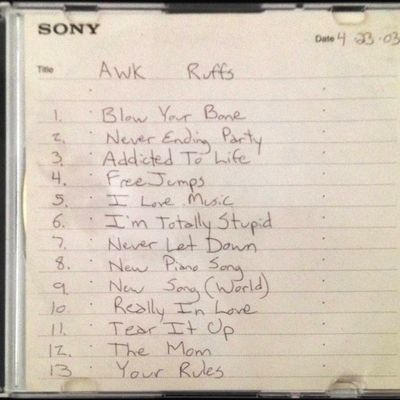 SONY
Date 4 23 03
Title AWK Ruffs
1. Blow Your Bone
2. Never Ending Party
3. Addicted To Life
4. Free Jumps
5. I Love Music
6. I'm Totally Stupid
7. Never Let Down
8. New Piano Song
9. New Song (World)
10. Really In Love
11. Tear It Up
12. The Mom
13 Your Rules